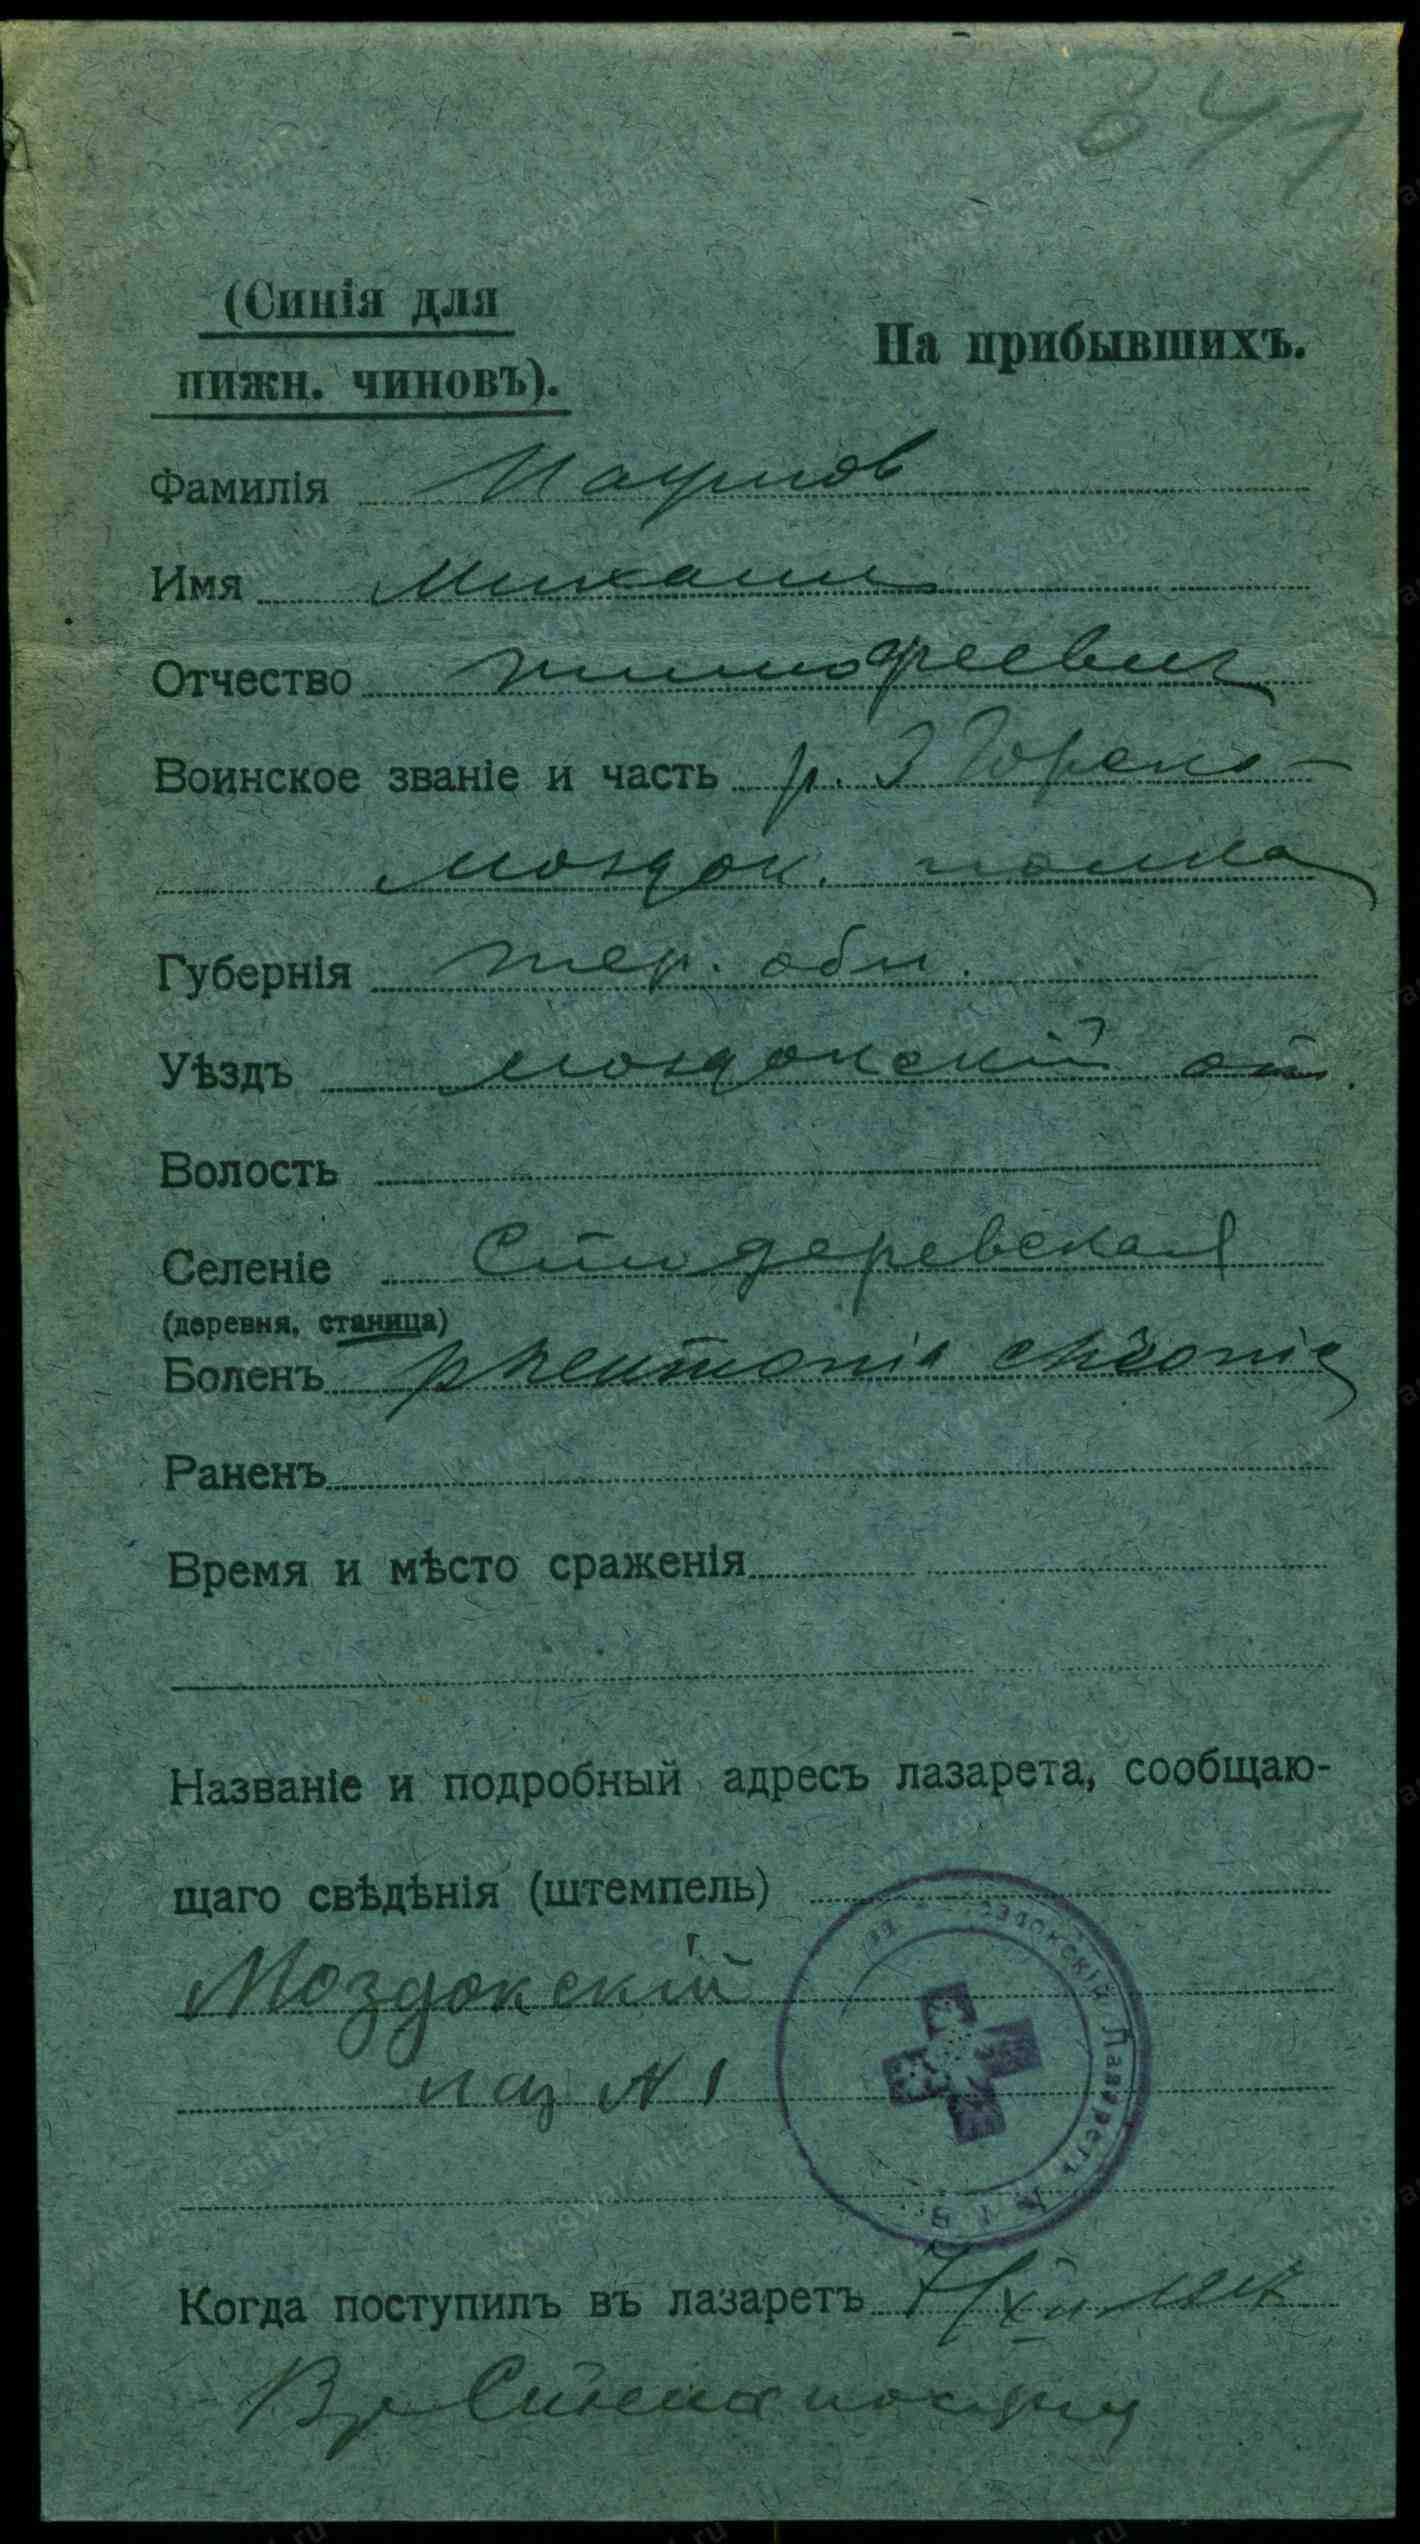 841
(Синія для
нижн. чиновъ).
На прибывшихъ.
Фамилія
Имя Михаил
Отчество тимофеевич
Воинское званіе и часть р. 3 Горско-
моздок. полка
Губернія тер. обл.
Уѣздъ моздокскій от.
Волость
Селеніе Стодеревская
(деревня, станица)
Боленъ pneumonia chronic
Раненъ
Время и мѣсто сраженія
Названіе и подробный адресъ лазарета, сообщаю-
щаго свѣдѣнія (штемпель)
Моздокскій
лаз № 1
Моздокскій Лазаретъ № 1
Когда поступилъ въ лазаретъ 7/XII 1917